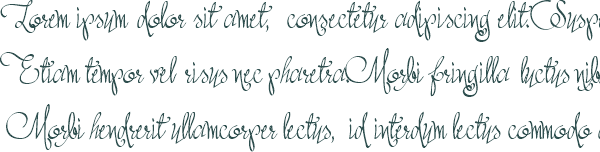 Lorem ipsum dolor sit amet, consectetur adipiscing elit. Susp
Etiam tempor vel risus nec pharetra. Morbi fringilla luctus nib
Morbi hendrerit ullamcorper lectus, id interdum lectus commodo